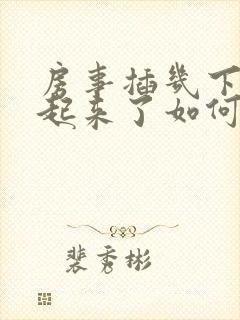 房事插几下
起来了如何
裴秀彬